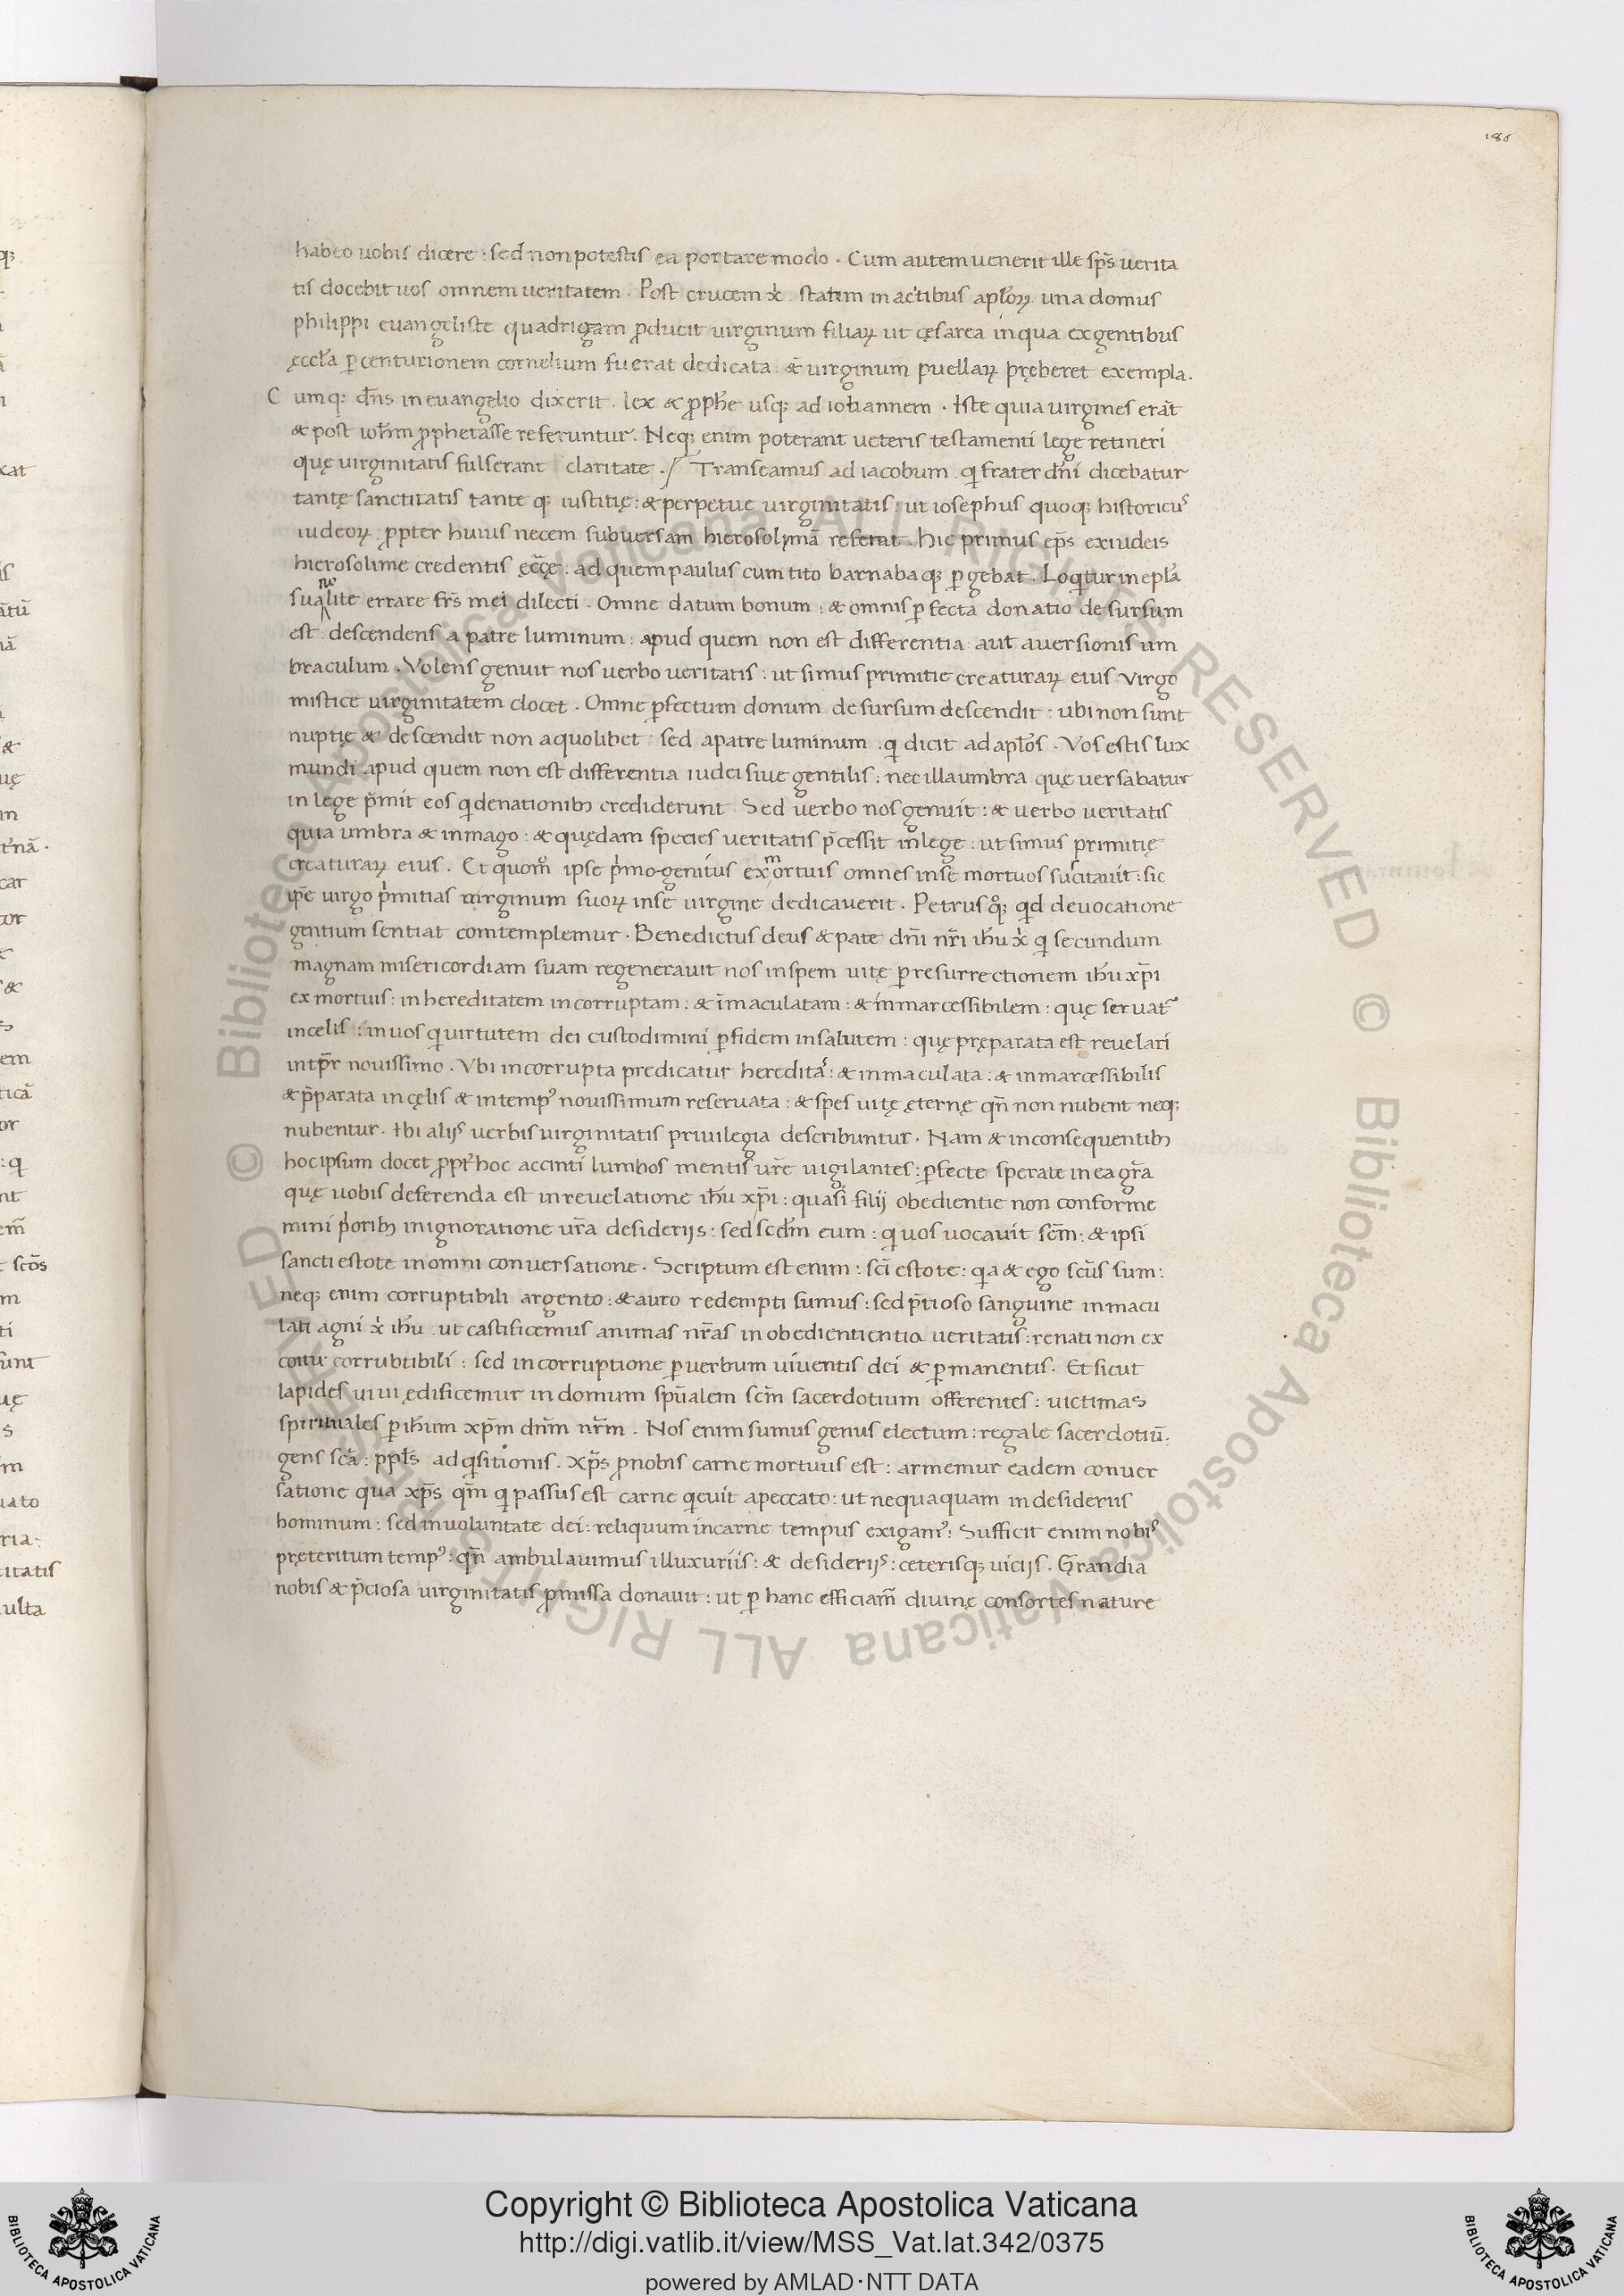 186
habeo uobis dicere : sed non potestis ea portare modo . Cum autem uenerit ille sp̄s uerita
tis docebit uos omnem ueritatem . Post crucem x̄ . statim in actibus apłoꝝ una domus
philippi euangeliste quadrigam ꝓducit uirginum filiaꝝ ut cęsarea in qua ex gentibus
ęccła ꝑ centurionem cornelium fuerat dedicata : & uirginum puellaꝝ pręberet exempla .
C umq; dn̄s in euangelio dixerit . lex & ꝓphe usq; ad iohannem . Iste quia uirgines erāt
& post ioh̄m ꝓphetasse referuntur . Neq; enim poterant ueteris testamenti lege retineri
quę uirginitatis fulserant claritate . / Transeamus ad iacobum . qi frater dn̄i dicebatur
tantę sanctitatis tante q; iustitię : & perpetue uirginitatis : ut iosephus quoq; historicus
iudeoꝝ ꝓpter huius necem subuersam hierosolymā referat . hic primus ep̄s ex iudeis
hierosolime credentis ęccę . ad quem paulus cum tito barnaba q; ꝑgebat . Loqitur in epła
sua nolite errare fr̄s mei dilecti . Omne datum bonum : & omnis ꝑfecta donatio de sursum
est : descendens a patre luminum : apud quem non est differentia aut auersionis um
braculum . Volens genuit nos uerbo ueritatis : ut simus primitie creaturaꝝ eius Virgo
mistice uirginitatem docet . Omne ꝑfectum donum de sursum descendit : ubi non sunt
nuptię & descendit non a quolibet : sed a patre luminum . qi dicit ad apłos . Vos estis lux
mundi apud quem non est differentia iudei siue gentilis : nec illa umbra quę uersabatur
in lege p̄mit eos qi de nationib; crediderunt . Sed uerbo nos genuit : & uerbo ueritatis
quia umbra & inmago : & quędam species ueritatis p̄cessit in lege : ut simus primitię
creaturaꝝ eius . Et quom̊ ipse pimogenitus ex mortuis omnes in se mortuos suscitauit : sic
ip̄e uirgo pimitias uirginum suoꝝ in se uirgine dedicauerit . Petrus qͦq; qid de uocatione
gentium sentiat comtemplemur . Benedictus deus & pate dn̄i nr̄i ih̄u x̄ qi secundum
magnam misericordiam suam regenerauit nos in spem uitę ꝑ resurrectionem ih̄u xp̄i
ex mortuis : in hereditatem incorruptam . & īmaculatam : & inmarcessibilem : quę seruat᷑
in celis : in uos qi uirtutem dei custodimini ꝑ fidem in salutem : quę pręparata est reuelari
in tp̄r nouissimo . Vbi incorrupta predicatur hereditas : & inmaculata : & inmarcessibilis
& p̄parata in cęlis & in tempꝰ nouissimum reseruata : & spes uitę ęternę qn̄ non nubent neq;
nubentur . Ibi alijs uerbis uirginitatis priuilegia describuntur . Nam & in consequentib;
hoc ipsum docet ꝓpt̄ hoc accinti lumbos mentis ur̄e uigilantes : ꝑfecte sperate in ea gr̄a
quę uobis deferenda est in reuelatione ih̄u xp̄i : quasi filij obedientie non conforme
mini piorib; in ignoratione ur̄a desiderijs : sed scdm̄ eum : qi uos uocauit sc̄m : & ipsi
sancti estote in omni conuersatione . Scriptum est enim : sc̄i estote : qia & ego sc̄us sum :
neq; enim corruptibili argento : & auro redempti sumus : sed p̄tioso sanguine inmacu
lati agni x̄ ih̄u . ut castificemus animas nr̄as in obedientientia ueritatis : renati non ex
coitu corrubtibili : sed incorruptione ꝑ uerbum uiuentis dei & ꝑmanentis . Et sicut
lapides uiui ędificemur in domum spūalem sc̄m sacerdotium offerentes : uictimas
spirituales ꝑ ih̄um xp̄m dn̄m nr̄m . Nos enim sumus genus electum : regale sacerdotiū :
gens sc̄a : ppłs adqisitionis . Xp̄s ꝓ nobis carne mortuus est : armemur eadem conuer
satione qua xp̄s qm̄ qi passus est carne qieuit a peccato : ut nequaquam in desideriis
hominum : sed in uoluntate dei : reliquum in carne tempus exigamꝰ : Sufficit enim nobis
pręteritum tempꝰ : qn̄ ambulauimus illuxuriis : & desiderijs : ceterisq; uicijs . Grandia
nobis & p̄ciosa uirginitatis ꝓmissa donauit : ut ꝑ hanc efficiam̄ diuinę consortes nature
© Biblioteca Apostolica Vaticana ALL RIGHTS RESERVED © Biblioteca Apostolica Vaticana ALL RIGHTS RESERVED
Copyright © Biblioteca Apostolica Vaticana
http://digi.vatlib.it/view/MSS_Vat.lat.342/0375
powered by AMLAD·NTT DATA
BIBLIOTECA APOSTOLICA VATICANA
BIBLIOTECA APOSTOLICA VATICANA